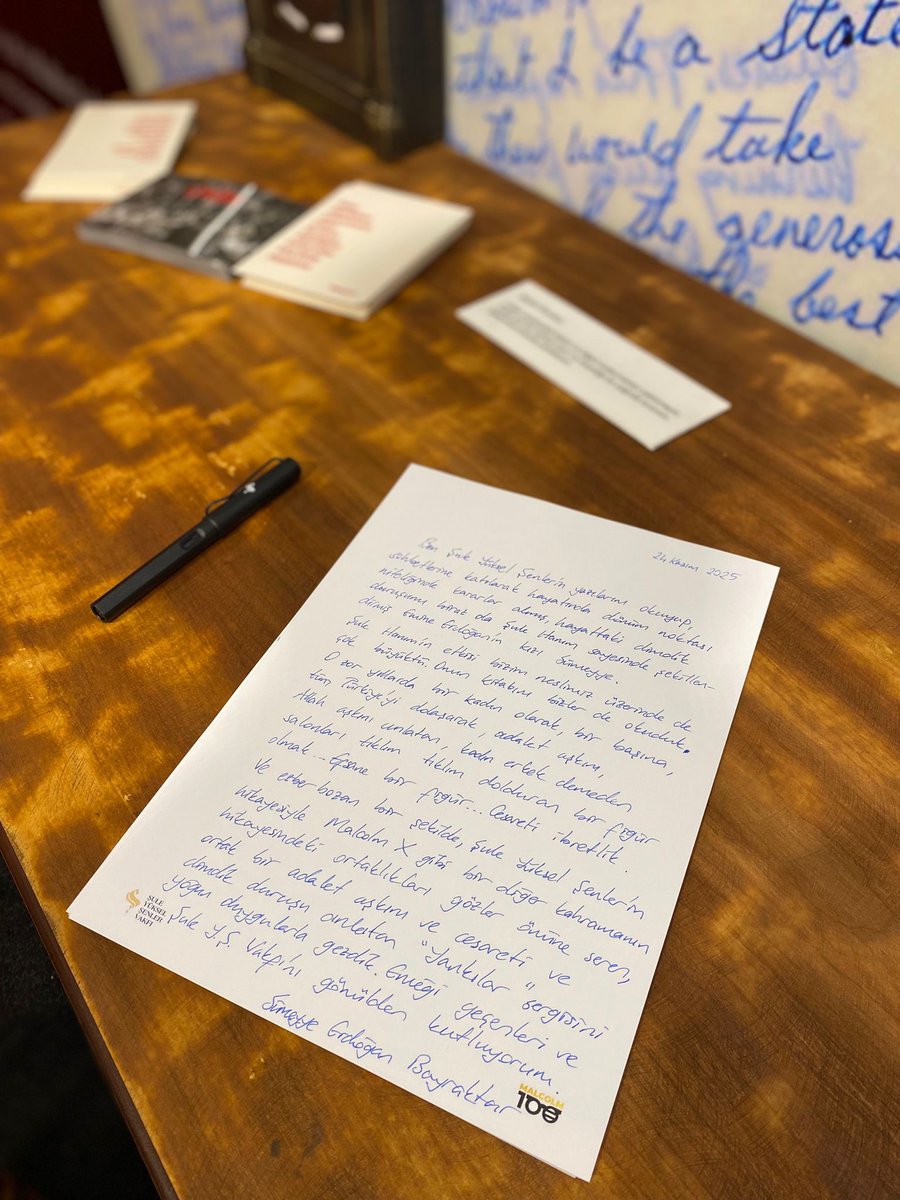 a state
what I be a
they would take
the generos
best
24 Kasım 2025
Ben Şule Yüksel Şenler'in yazılarını okuyup,
sohbetlerine katılarak hayatında dönüm noktası
niteliğinde kararlar almış, hayattaki dimdik
duruşunu biraz da Şule Hanım sayesinde şekillen-
dirmiş Emine Erdoğan'ın kızı Sümeyye.
Şule Hanım'ın etkisi bizim neslimiz üzerinde de
çok büyüktü. Onun kitabını bizler de okuduk.
O zor yıllarda bir kadın olarak, bir başına,
tüm Türkiye'yi dolaşarak, adalet aşkını,
Allah aşkını anlatan, kadın erkek demeden
salonları tıklım tıklım dolduran bir figür
olmak... Efsane bir figür... Cesareti ibretlik.
Ve ezber bozan bir şekilde, Şule Yüksel Şenler'in
hikayesiyle Malcolm X gibi bir diğer kahramanın
hikayesindeki ortaklıkları gözler önüne seren,
ortak bir adalet aşkını ve cesareti ve
dimdik duruşu anlatan "Yankılar" sergisini
yoğun duygularla gezdik. Emeği geçenleri ve
Şule Y.Ş. Vakfı'nı gönülden kutluyorum.
Sümeyye Erdoğan Bayraktar
ŞULE
YÜKSEL
ŞENLER
VAKFI
MALCOLM
100